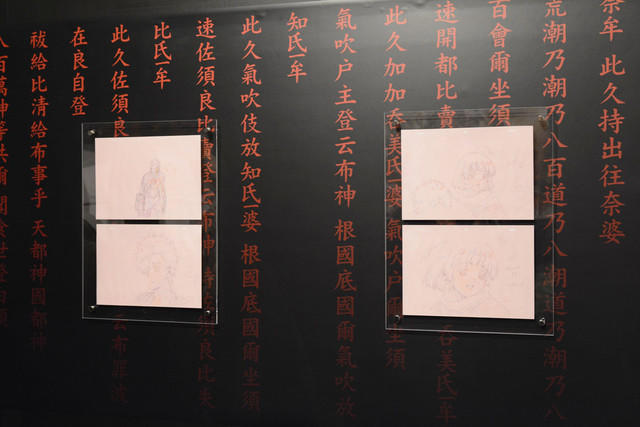 奈牟 此久持出往奈婆
荒潮乃潮乃八百道乃八潮道乃八
百會爾坐須
速開都比賣 呑美氐牟
此久加加呑美氐婆 氣吹戸 坐須
氣吹戸主登云布神 根國底國爾氣吹放
知氐牟
此久氣吹伎放知氐婆 根國底國爾坐須
速佐須良比賣登云布神 須良比失
比氐牟
此久佐須良 云布罪波
在良自登
祓給比清給布事乎 天都神國都神
八百萬神等共爾 聞食世登白須